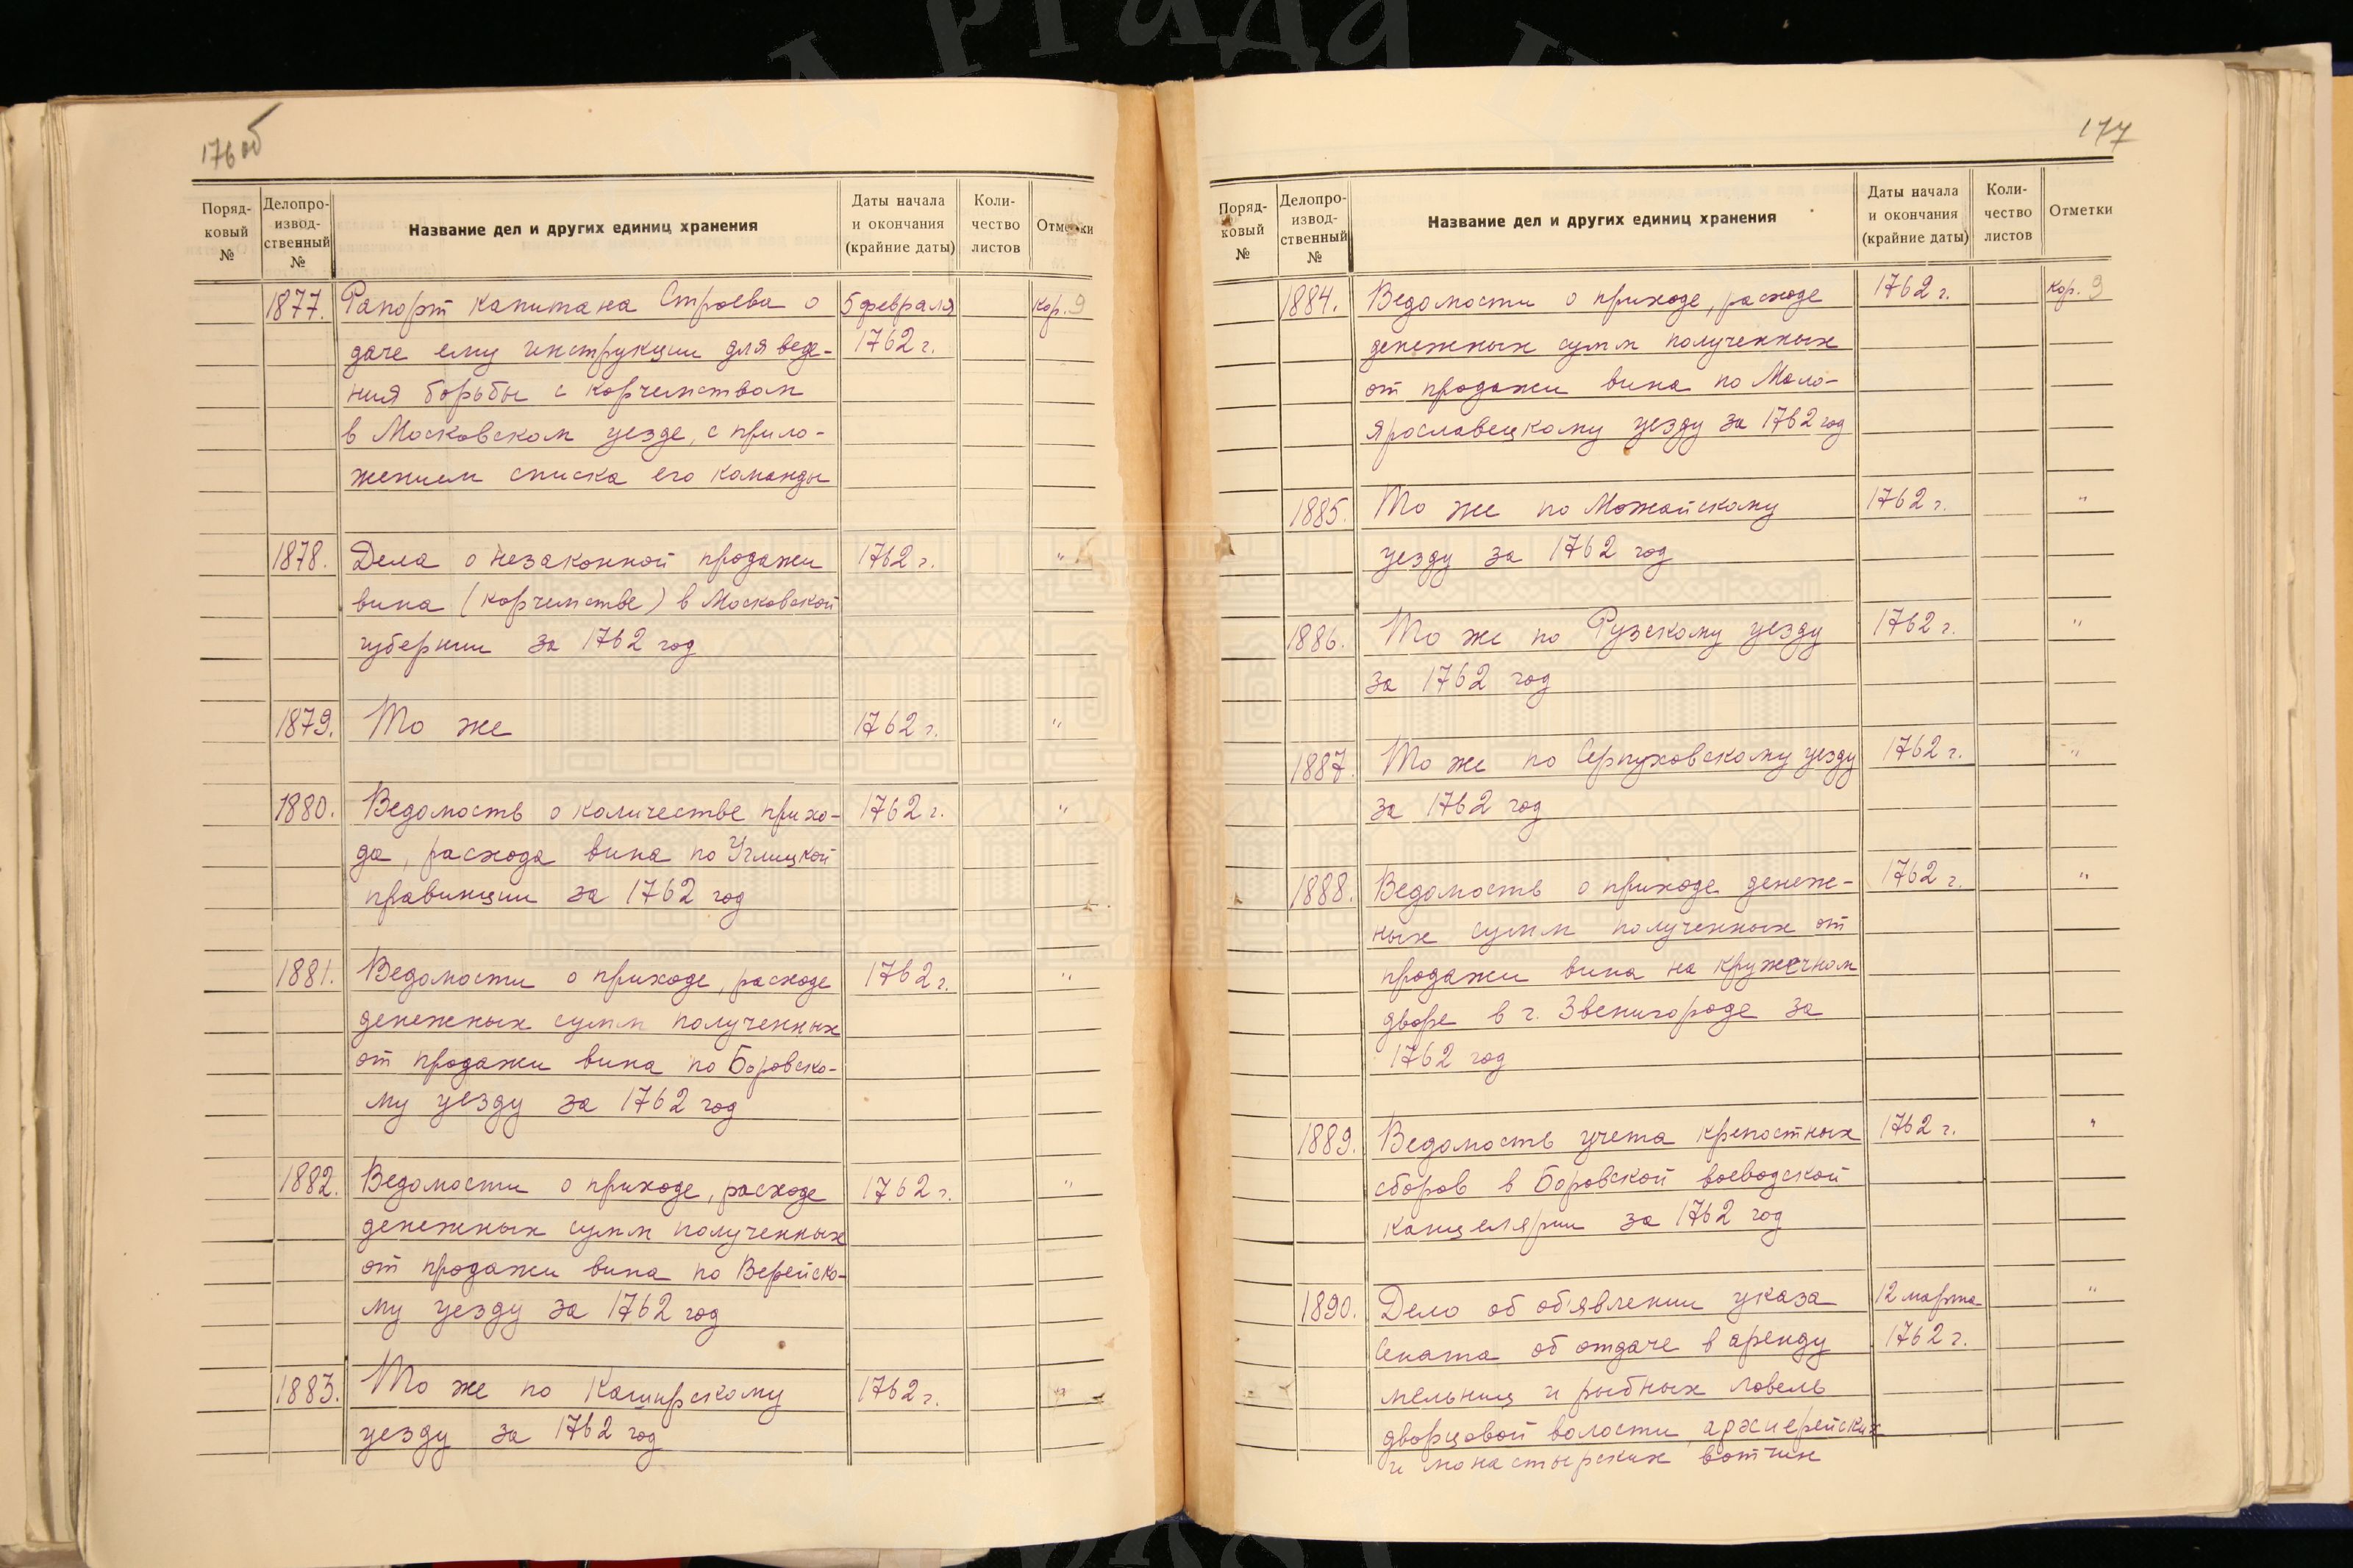 176 об
Поряд-
ковый
№
Делопро-
извод-
ственный
№
Название дел и других единиц хранения
Даты начала
и окончания
(крайние даты)
Коли-
чество
листов
Отметки
1877. Рапорт капитана Строева о 5 февраля кор. 9
даче ему инструкции для веде- 1762 г.
ния борьбы с корчемством
в Московском уезде, с прило-
жением списка его команды
1878. Дела о незаконной продажи 1762 г. "
вина (корчемстве) в Московской
губернии за 1762 год
1879. То же 1762 г. "
1880. Ведомость о количестве прихо- 1762 г. "
да, расхода вина по Углицкой
правинции за 1762 год
1881. Ведомости о приходе, расходе 1762 г. "
денежных сумм полученных
от продажи вина по Боровско-
му уезду за 1762 год
1882. Ведомости о приходе, расходе 1762 г. "
денежных сумм полученных
от продажи вина по Верейско-
му уезду за 1762 год
1883. То же по Каширскому 1762 г. "
уезду за 1762 год
177
Поряд-
ковый
№
Делопро-
извод-
ственный
№
Название дел и других единиц хранения
Даты начала
и окончания
(крайние даты)
Коли-
чество
листов
Отметки
1884. Ведомости о приходе, расходе 1762 г. кор. 9
денежных сумм полученных
от продажи вина по Мало-
ярославецкому уезду за 1762 год
1885. То же по Можайскому 1762 г. "
уезду за 1762 год
1886. То же по Рузскому уезду 1762 г. "
за 1762 год
1887. То же по Серпуховскому уезду 1762 г. "
за 1762 год
1888. Ведомость о приходе денеж- 1762 г. "
ных сумм полученных от
продажи вина на кружечном
дворе в г. Звенигороде за
1762 год
1889. Ведомость учета крепостных 1762 г. "
сборов в Боровской воеводской
канцелярии за 1762 год
1890. Дело об об'явлении указа 12 марта "
Сената об отдаче в аренду 1762 г.
мельниц и рыбных ловель
дворцовой волости, архиерейских
и монастырских вотчин